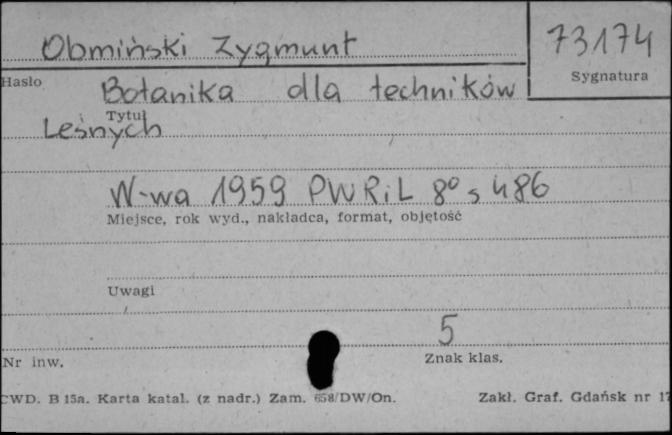 Obmiński Zygmunt
73174
Hasło
Sygnatura
Botanika dla techników
Tytuł
Leśnych
W-wa 1959 PWRiL 8° s 486
Miejsce, rok wyd., nakładca, format, objętość
Uwagi
5
Nr inw.
Znak klas.
CWD. B 15a. Karta katal. (z nadr.) Zam. 658/DW/On.
Zakł. Graf. Gdańsk nr